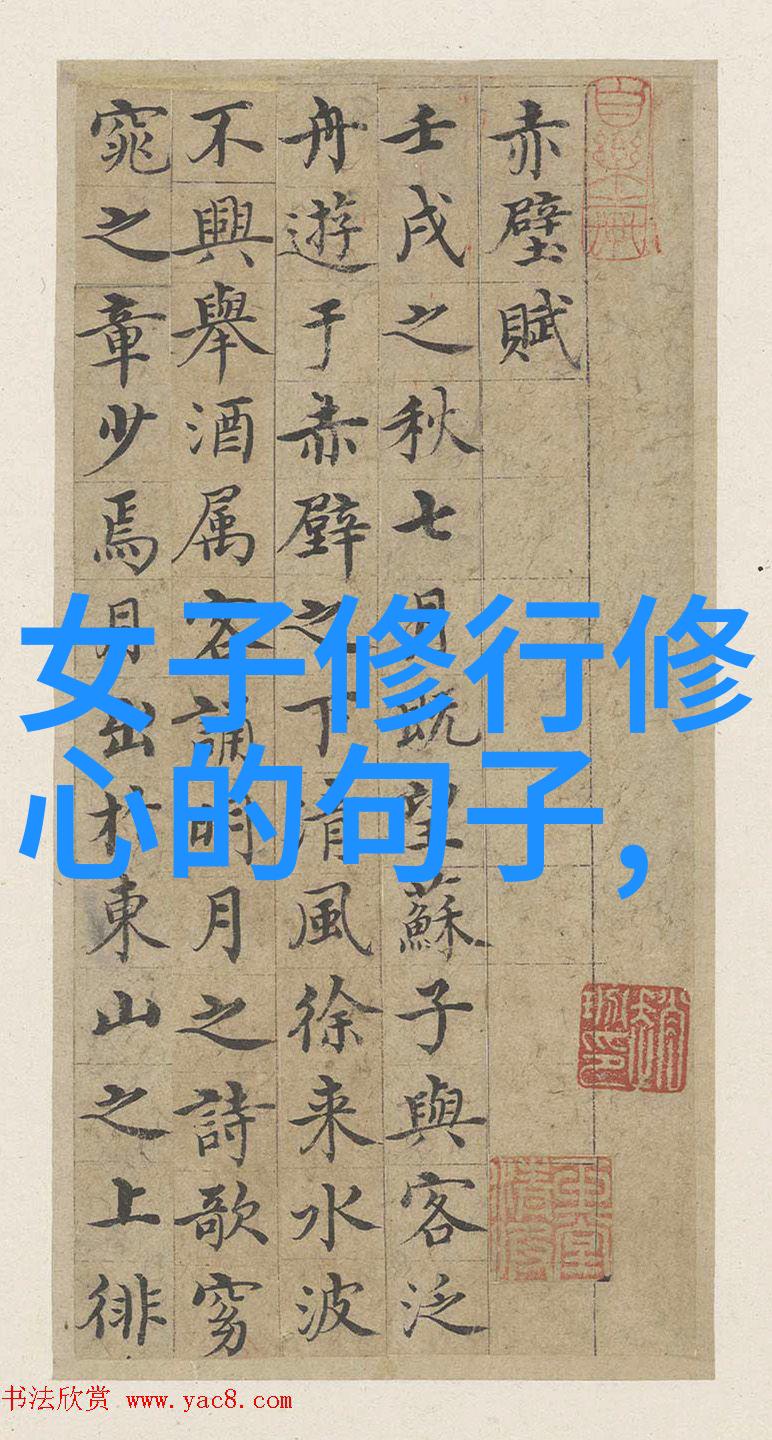 赤壁賦
壬戌之秋七月既望蘇子與客泛
舟遊于赤壁之下清風徐来水波
不興舉酒属客誦明月之詩歌窈
窕之章少焉月出於東山之上徘
女子修行修
心的句子,
书法欣赏 www.yac8.com